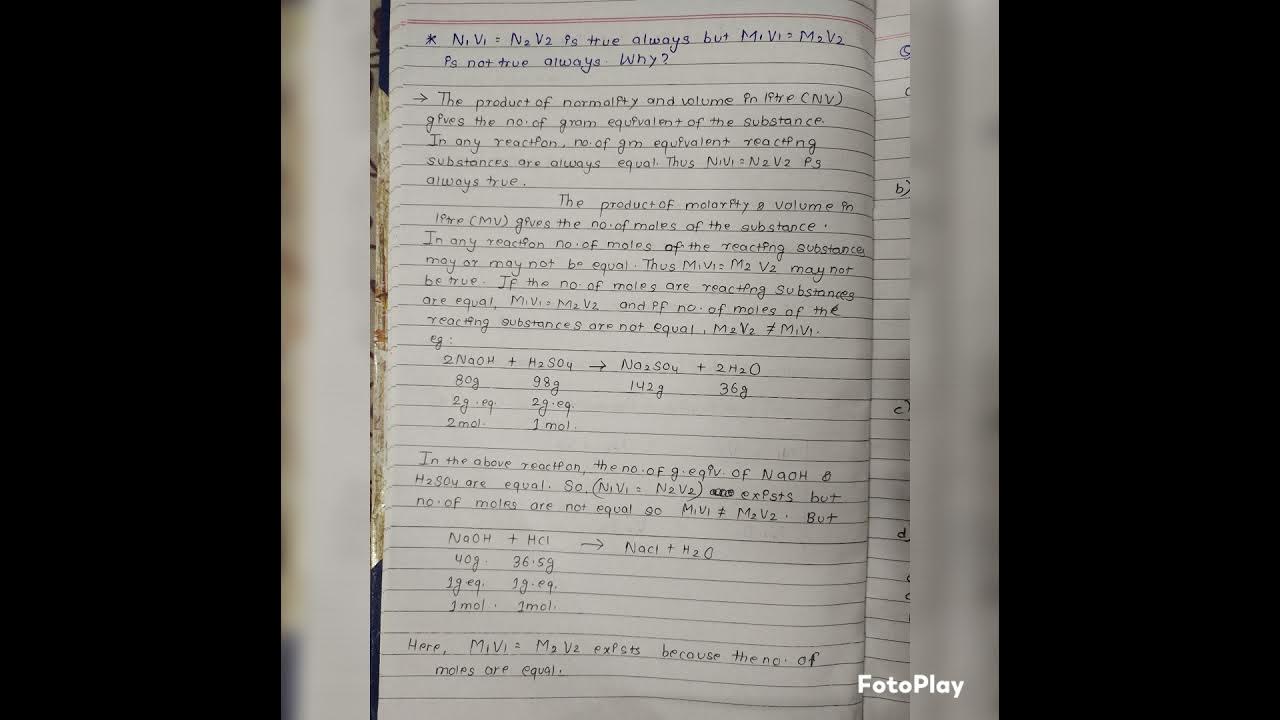 * N1V1 = N2V2 is true always but M1V1 = M2V2
is not true always. Why?
→ The product of normality and volume in litre (NV)
gives the no. of gram equivalent of the substance.
In any reaction, no. of gm equivalent reacting
substances are always equal. Thus N1V1 = N2V2 is
always true.
The product of molarity & volume in
litre (MV) gives the no. of moles of the substance.
In any reaction no. of moles of the reacting substances
may or may not be equal. Thus M1V1 = M2V2 may not
be true. If the no. of moles are reacting substances
are equal, M1V1 = M2V2 and if no. of moles of the
reacting substances are not equal, M2V2 ≠ M1V1.
eg:
2NaOH + H2SO4 → Na2SO4 + 2H2O
80g 98g 142g 36g
2g.eq. 2g.eq.
2mol. 1mol.
In the above reaction, the no. of g.eqiv. of NaOH &
H2SO4 are equal. So, (N1V1 = N2V2) exists but
no. of moles are not equal so M1V1 ≠ M2V2. But
NaOH + HCl → Nacl + H2O
40g. 36.5g
1g eq. 1g.eq.
1mol. 1mol.
Here, M1V1 = M2V2 exists because the no. of
moles are equal.
b)
c)
d)
FotoPlay